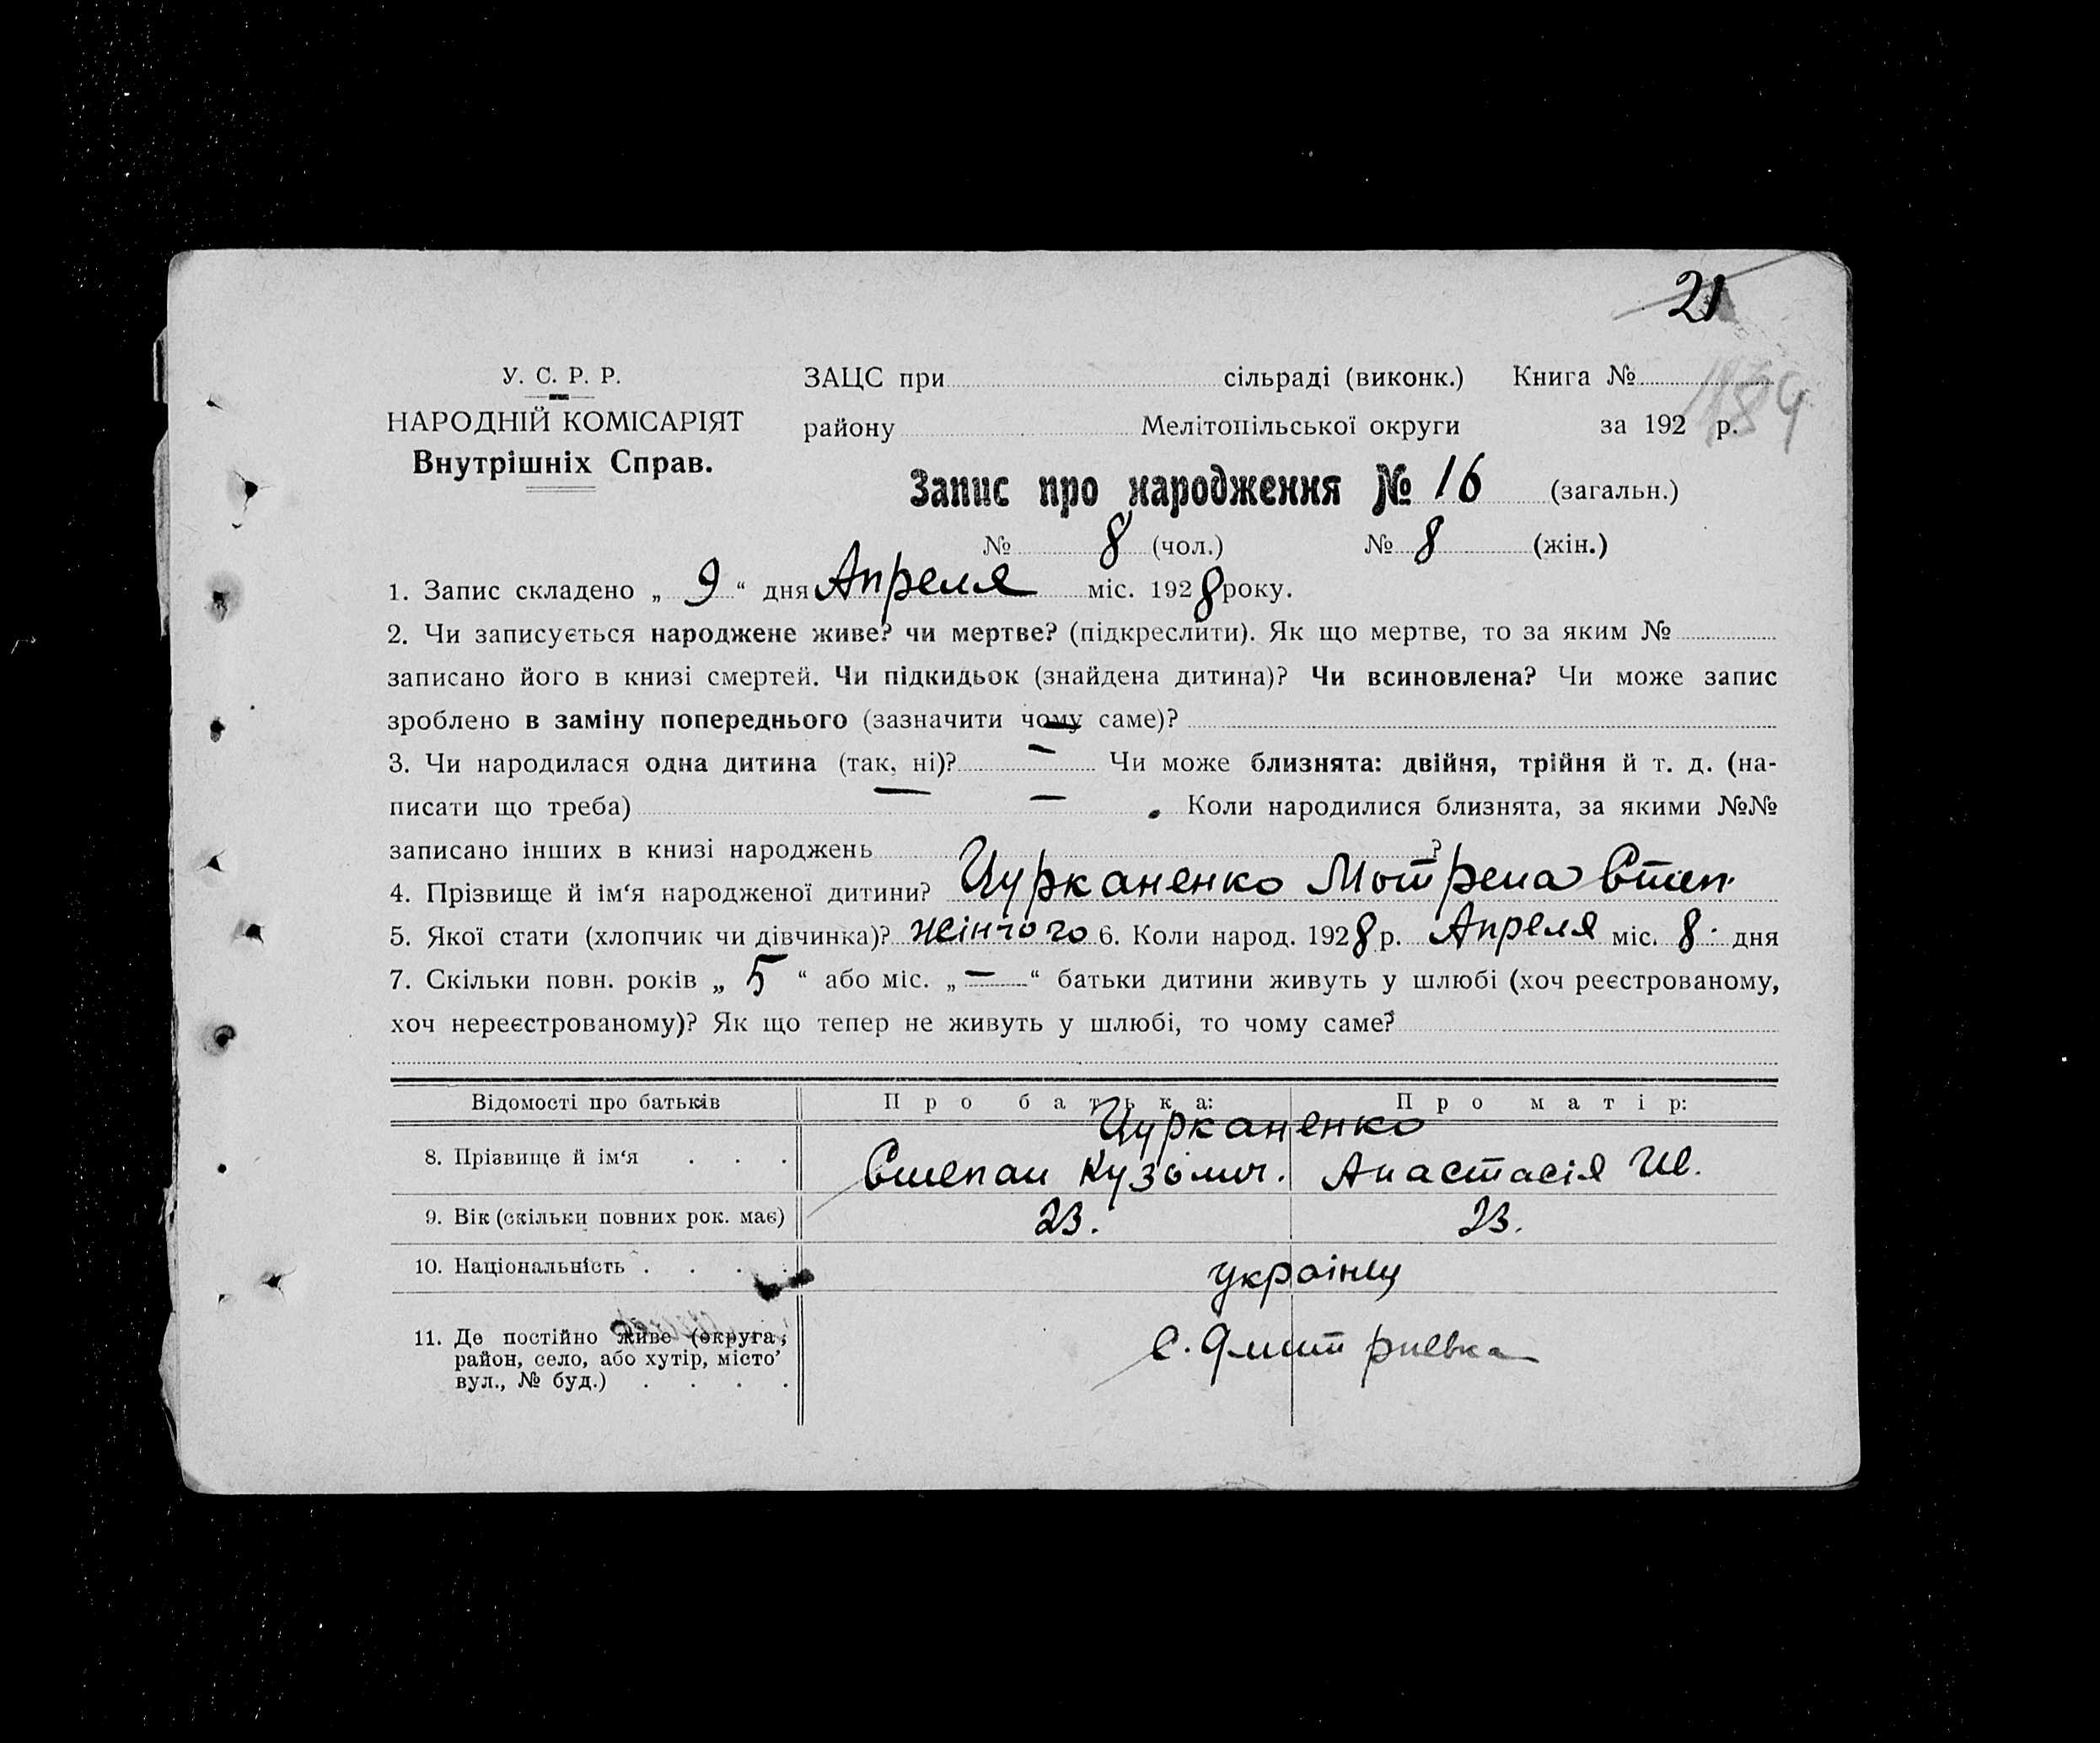 21
У. С. Р. Р.
НАРОДНІЙ КОМІСАРІЯТ
Внутрішніх Справ.
ЗАЦС при сільраді (виконк.) Книга №
району Мелітопільської округи за 192 р.
Запис про народження № 16 (загальн.)
№ 8 (чол.) № 8 (жін.)
1. Запис складено „ 9 “ дня Апреля міс. 1928 року.
2. Чи записується народжене живе? чи мертве? (підкреслити). Як що мертве, то за яким №
записано його в книзі смертей. Чи підкидьок (знайдена дитина)? Чи всиновлена? Чи може запис
зроблено в заміну попереднього (зазначити чому саме)?
3. Чи народилася одна дитина (так, ні)? — Чи може близнята: двійня, трійня й т. д. (на-
писати що треба) — . Коли народилися близнята, за якими №№
записано інших в книзі народжень ?
4. Прізвище й ім‘я народженої дитини? Цурканенко Мотрена Степ.
5. Якої стати (хлопчик чи дівчинка)? жінчого 6. Коли народ. 1928 р. Апреля міс. 8 дня
7. Скільки повн. років „ 5 “ або міс. „ — “ батьки дитини живуть у шлюбі (хоч реєстрованому,
хоч нереєстрованому)? Як що тепер не живуть у шлюбі, то чому саме?
Відомості про батьків Про батька: Про матір:
Цурканенко
8. Прізвище й ім‘я . . . Степан Кузьмич. Анастасія Ив.
9. Вік (скільки повних рок. має) 23. 23.
10. Національність . . . . українцы
11. Де постійно живе (округа,
район, село, або хутір, місто,
вул., № буд.) . . . .
с. Дмитриевка